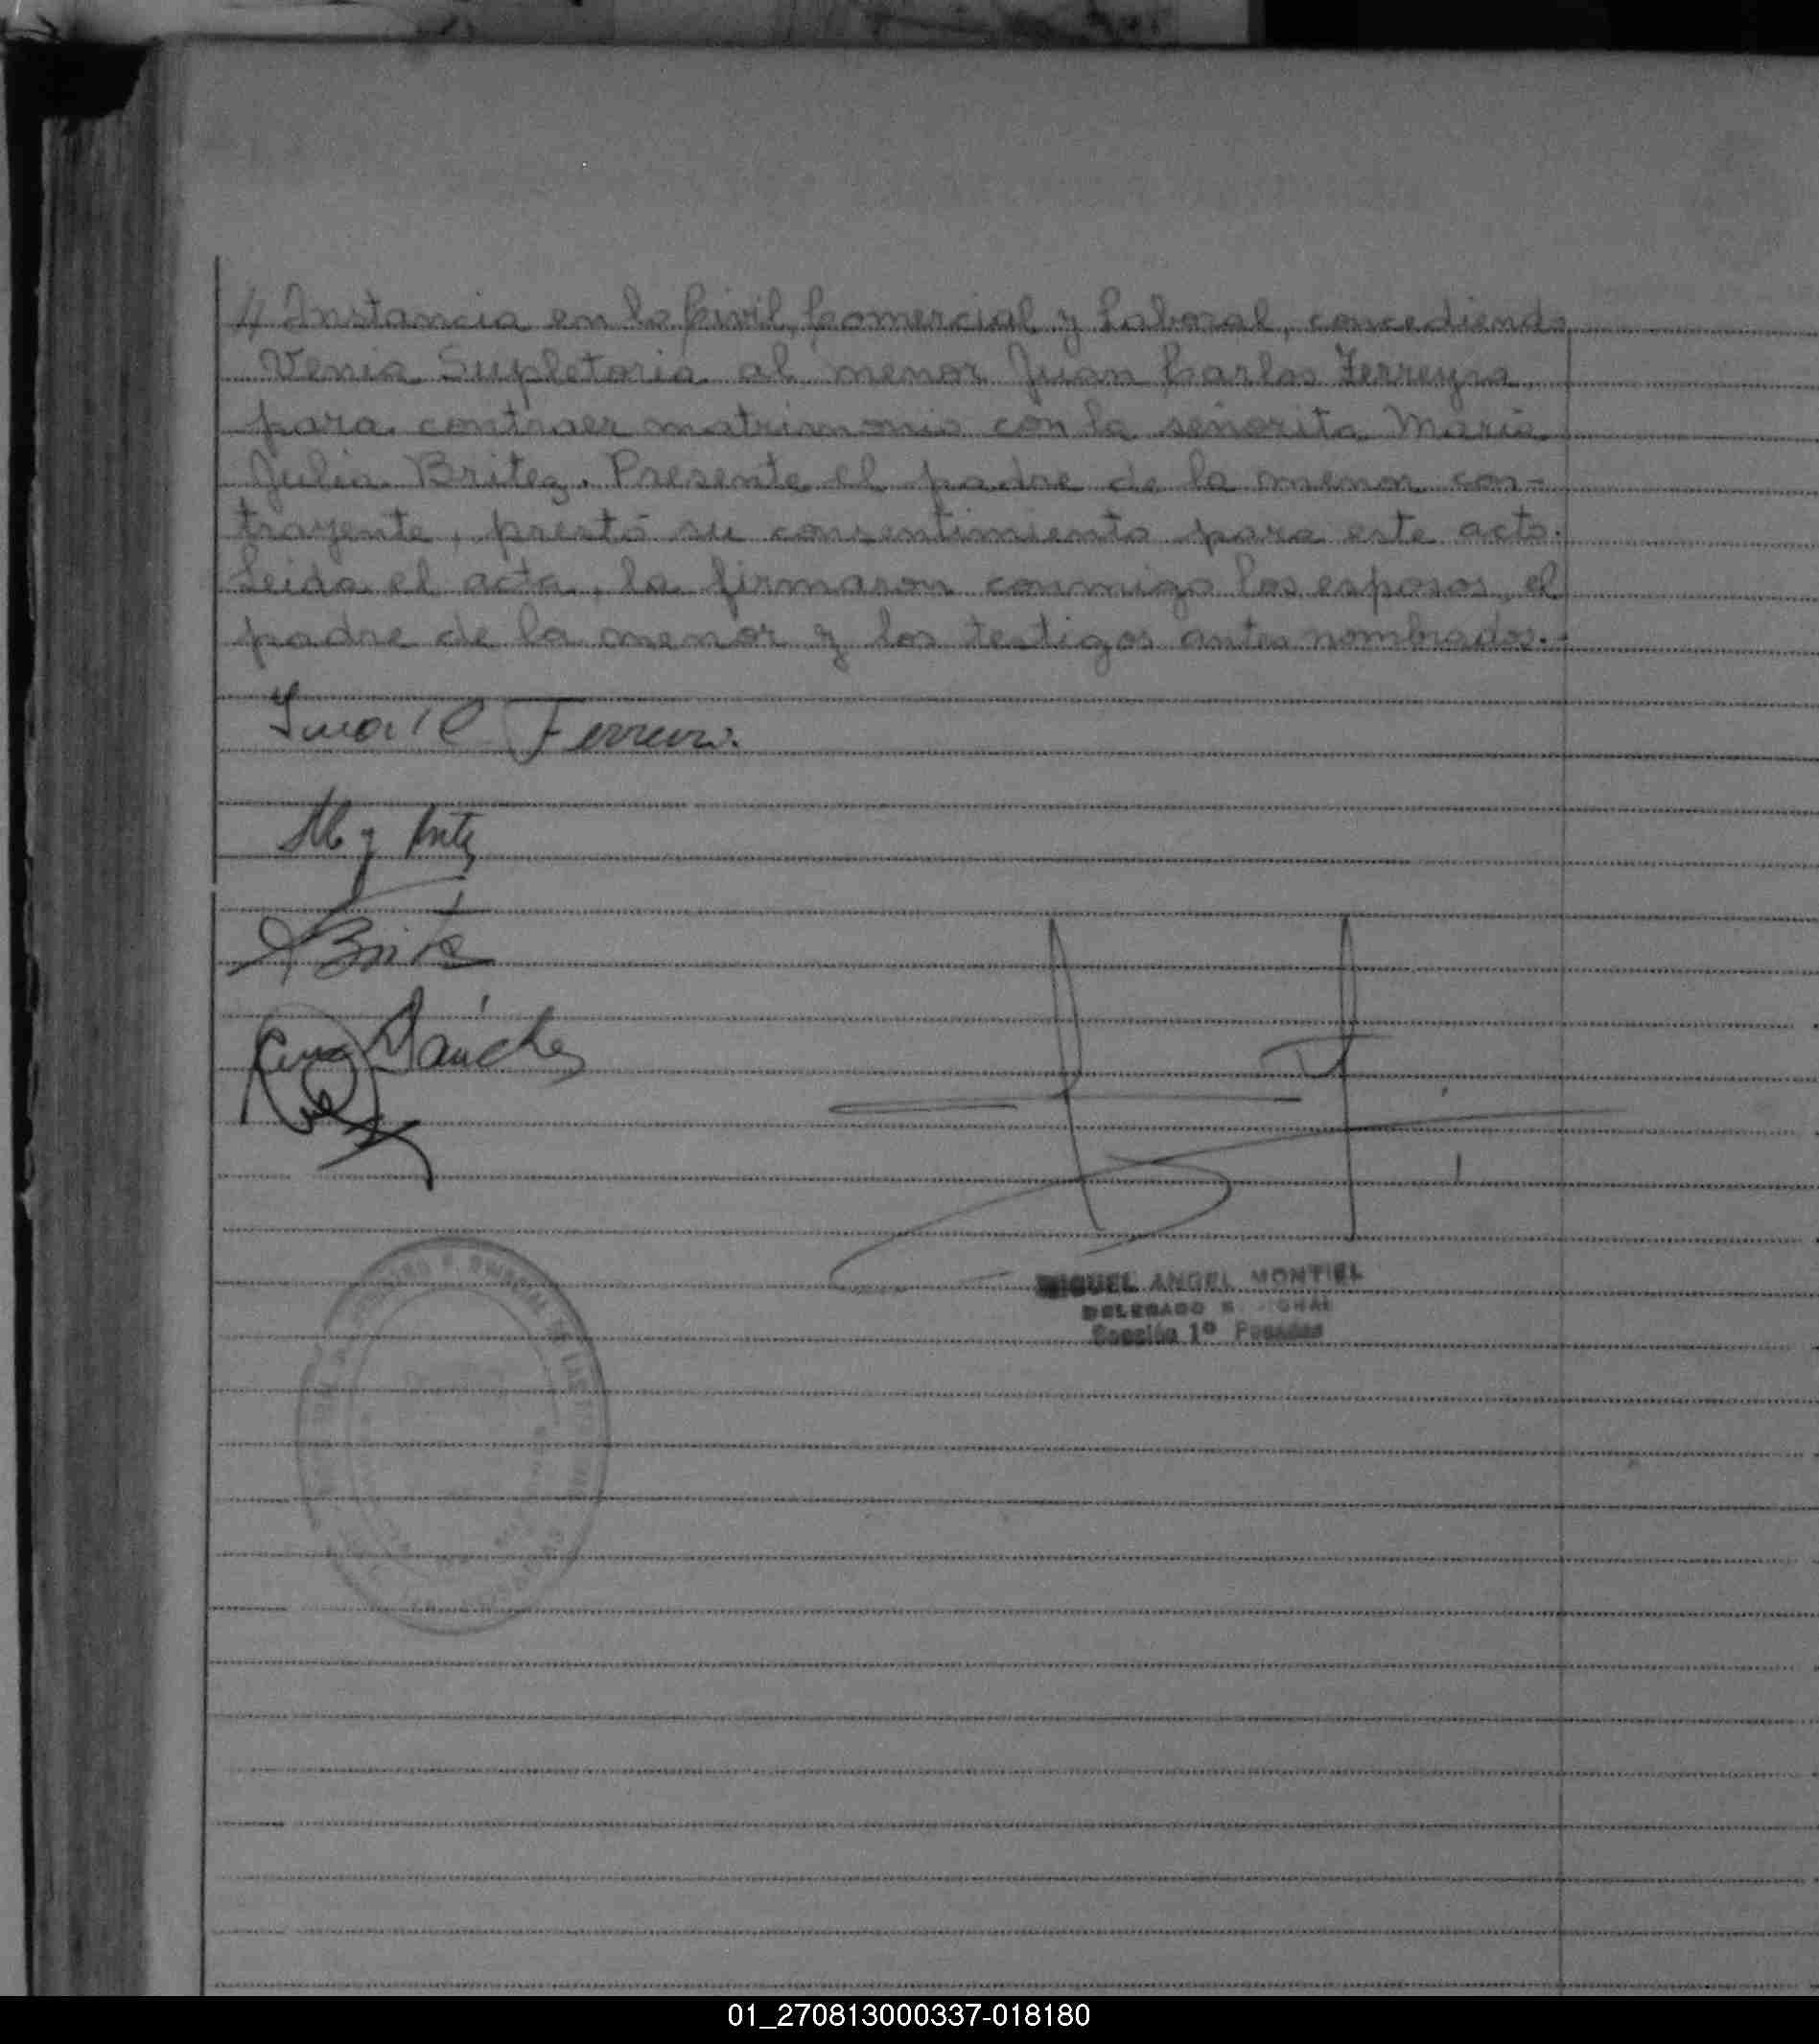 // Instancia en lo Civil, Comercial y Laboral, concediendo
Venia Supletoria al menor Juan Carlos Ferreyra
para contraer matrimonio con la señorita María
Julia Britez. Presente el padre de la menor con-
trayente, prestó su consentimiento para este acto.
Leida el acta, la firmaron conmigo los esposos, el
padre de la menor y los testigos antes nombrados.-
Britez
Sánchez
MIGUEL ANGEL MONTIEL
DELEGADO
Sección 1º Posadas
01_270813000337-018180